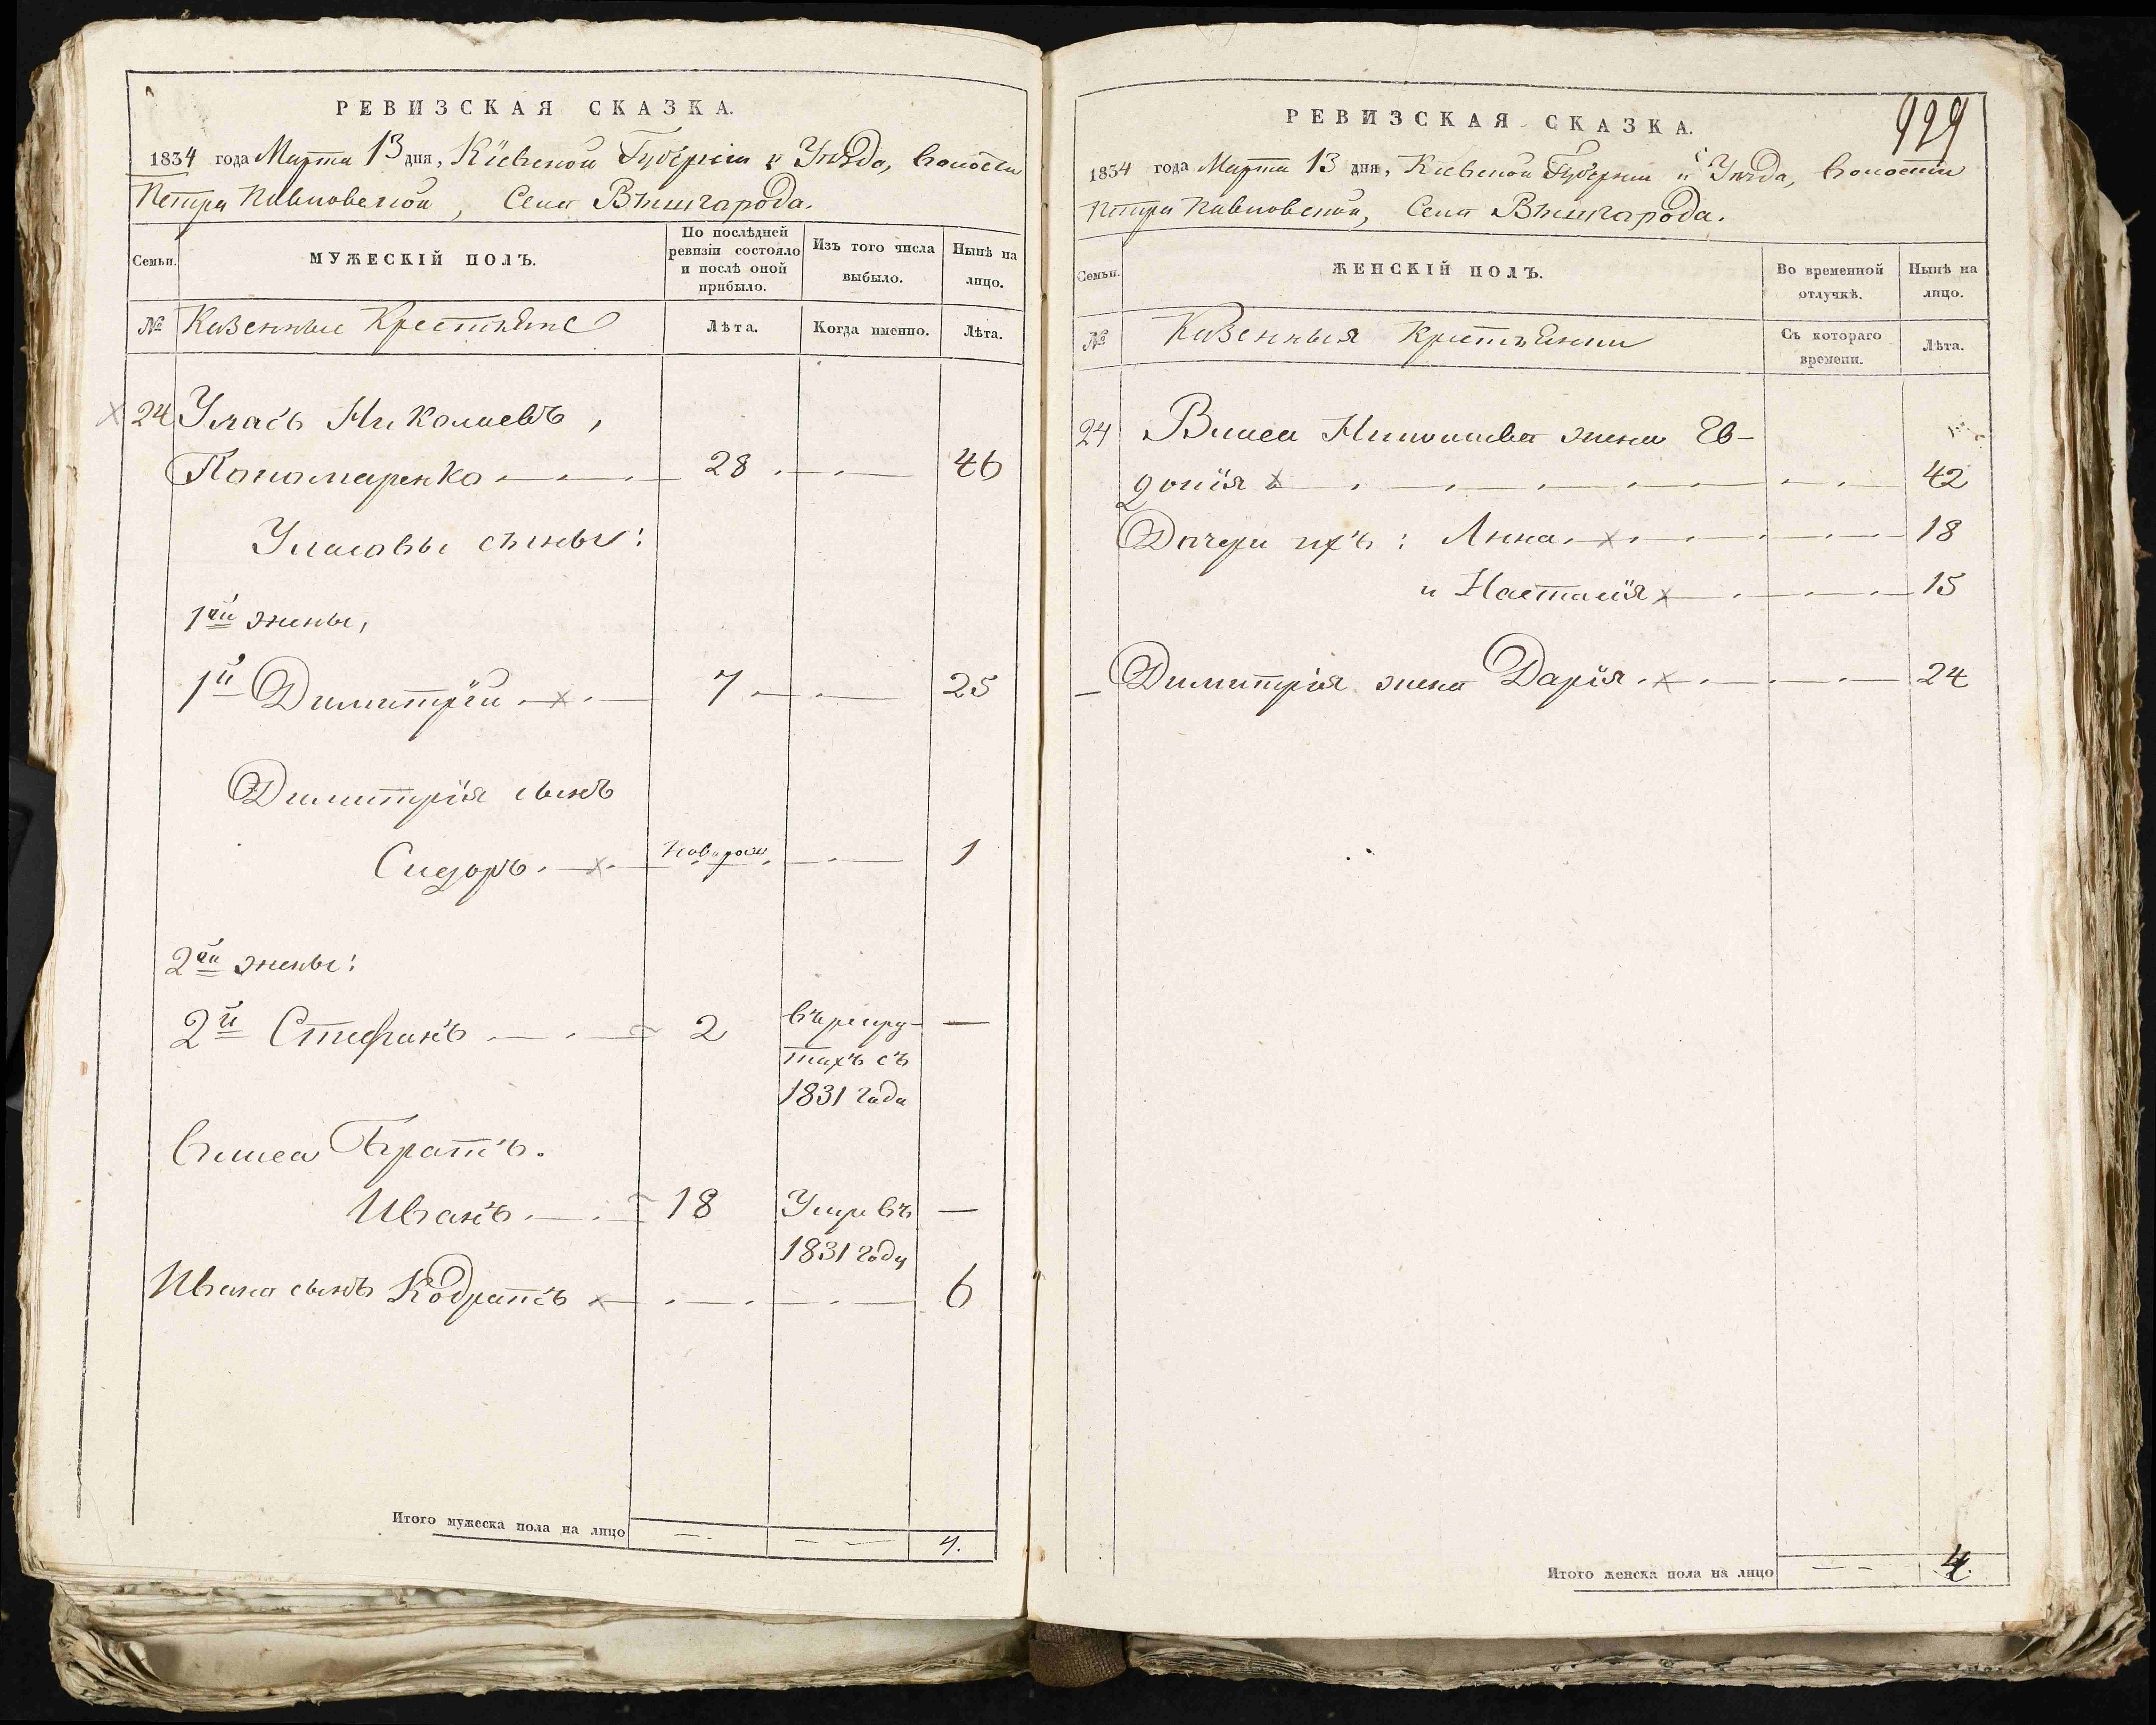 РЕВИЗСКАЯ СКАЗКА.
1834 года Марта 13 дня, Кіевской Губерніи и Уѣзда, волости
Петро Павловской, Села Вышгарода.
Семьи. МУЖЕСКІЙ ПОЛЪ. По послѣдней ревизіи состояло и послѣ оной прибыло. Изъ того числа выбыло. Нынѣ на лицо.
№ Казенные Крестьяне Лѣта. Когда именно. Лѣта.
24 Уласъ Николаевъ,
Пономаренко 28 46
Уласовы сыны:
1ей жены,
1й Димитрій 7 25
Димитрія сынъ
Сидоръ. новорож. 1
2ей жены:
2й Стефанъ 2 въ рекру-
тахъ съ
1831 года
Власа Братъ.
Иванъ 18 Умре въ
1831 году
Ивана сынъ Кодратъ 6
Итого мужеска пола на лицо 4.
929
РЕВИЗСКАЯ СКАЗКА.
1834 года Марта 13 дня, Кіевской Губерніи и Уѣзда, волости
Петро Павловской, Села Вышгарода.
Семьи. ЖЕНСКІЙ ПОЛЪ. Во временной отлучкѣ. Нынѣ на лицо.
№ Казенныя Крестьянки Съ котораго времени. Лѣта.
24 Власа Николаева жена Ев-
докія 42
Дочери ихъ: Анна 18
и Настасія 15
Димитрія жена Дарія 24
Итого женска пола на лицо 4.